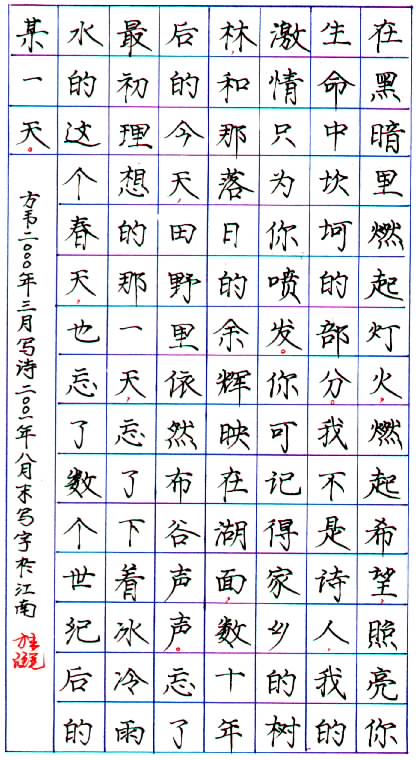 在黑暗里燃起灯火,燃起希望,照亮你
生命中坎坷的部分。我不是诗人,我的
激情只为你喷发。你可记得家乡的树
林和那落日的余辉映在湖面,数十年
后的今天,田野里依然布谷声声。忘了
最初理想的那一天,忘了下着冰冷雨
水的这个春天,也忘了数个世纪后的
某一天。
方韦二〇〇〇年三月写诗 二〇〇一年八月末写字於江南